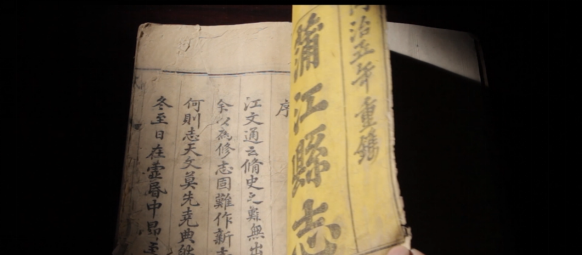 同治五年重鐫
蒲江縣志
序
江文通云脩史之難無出
余以為修志固難作新
何則志天文莫先堯典
冬至日在虛昬中昴